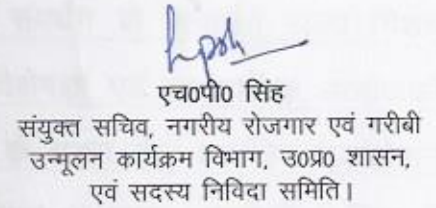 एच०पी० सिंह
संयुक्त सचिव, नगरीय रोजगार एवं गरीबी
उन्मूलन कार्यक्रम विभाग, उ०प्र० शासन,
एवं सदस्य निविदा समिति।